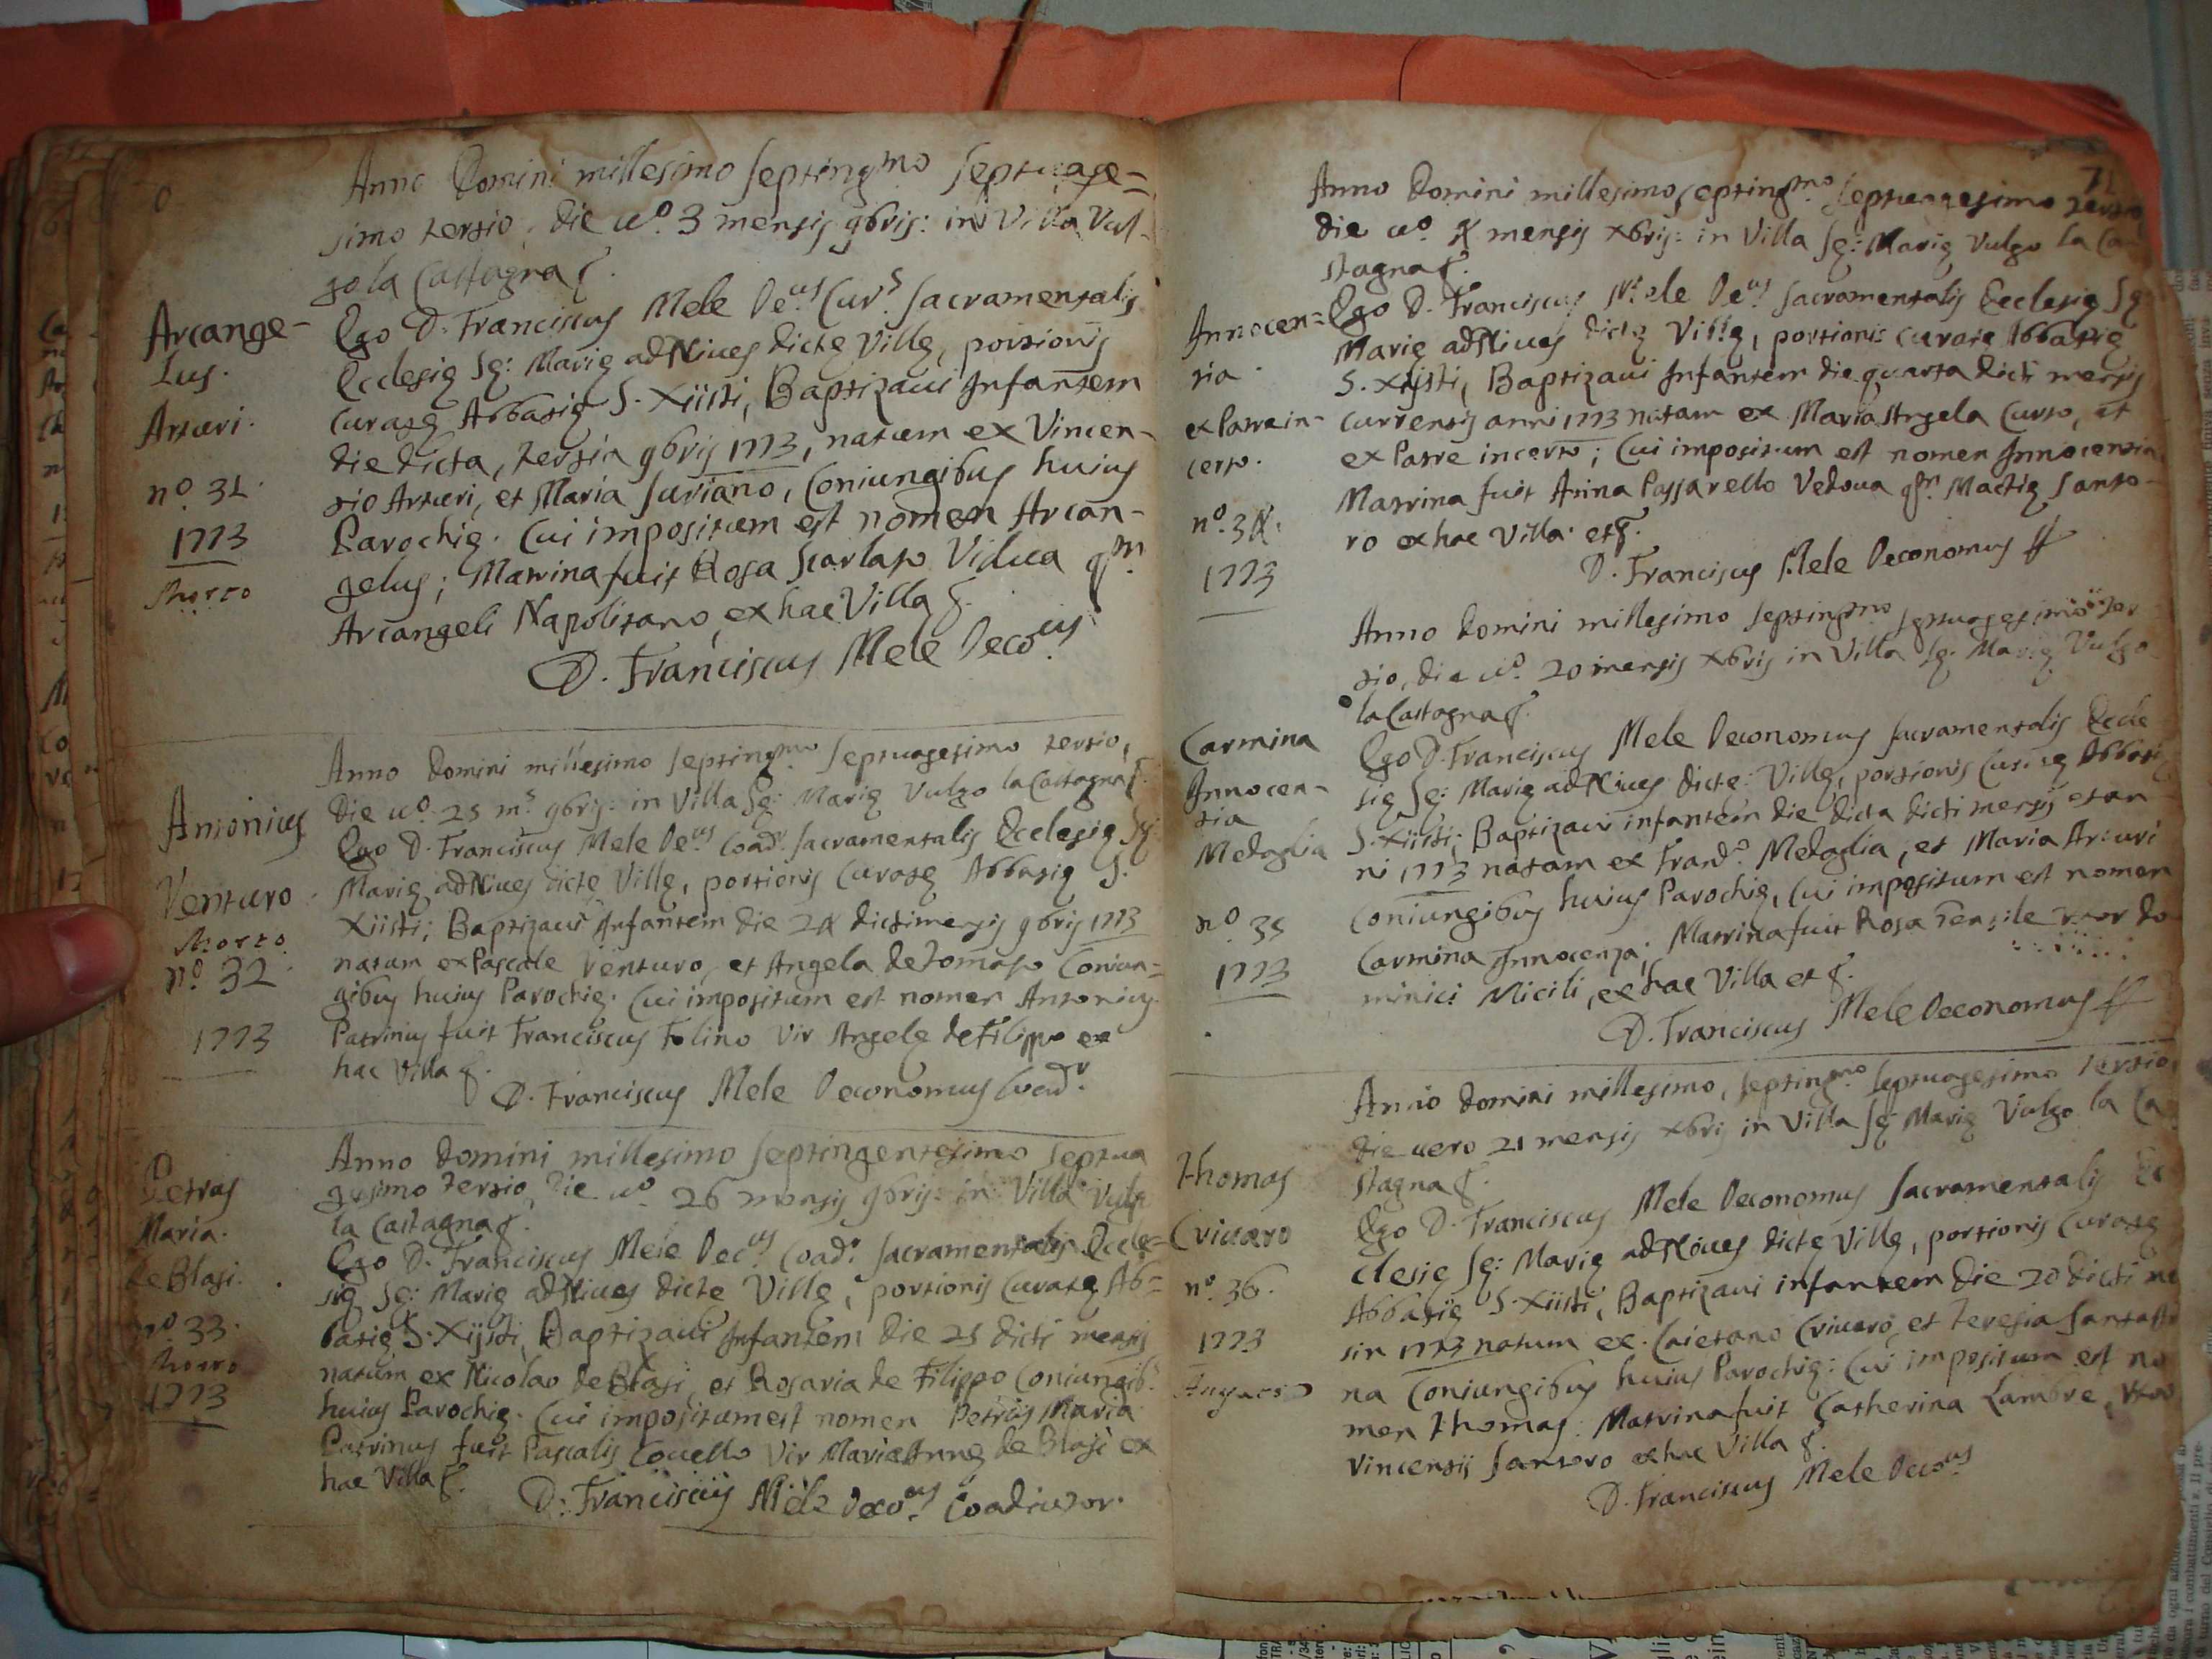 Anno Domini millesimo septing.mo septuage=
simo tertio, die v.o 3 mensis 9bris: in Villa Vul-
go la Castagna
Arcange-
lus.
Arturi.
n.o 31.
1773
Morto
Ego D. Franciscus Mele Oe.us Cur.s Sacramentalis
Ecclesię Sę: Marię ad Nives dictę Villę, portionis
Curatę Abbatię S. Xiisti, Baptizavi Infantem
die dicta, tertia 9bris 1773, natum ex Vincen-
tio Arturi, et Maria Suriano, Coniungibus huius
Parochię. Cui impositum est nomen Arcan-
gelus; Matrina fuit Rosa Scarlato Vidua q.m
Arcangeli Napolitano, ex hac Villa
D. Franciscus Mele Oeco.us
Anno Domini millesimo septing.mo septuagesimo tertio,
die v.o 25 m.s 9bris: in Villa Sę: Marię Vulgo la Castagna
Antonius
Venturo
Morto
n.o 32
1773
Ego D. Franciscus Mele Oe.us Coad.r Sacramentalis Ecclesię Sę:
Marię ad Nives dictę Villę, portionis Curatę Abbatię S.
Xiisti; Baptizavi Infantem die 24 dicti mensis 9bris 1773
natum ex Pascale Venturo, et Angela de Tomaso Coniun=
gibus huius Parochię. Cui impositum est nomen Antonius.
Patrinus fuit Franciscus Folino Vir Angelę de Filippo ex
hac Villa
D. Franciscus Mele Oeconomus Coad.r
Anno Domini millesimo septingentesimo septua
gesimo tertio, die v.o 26 mensis 9bris: in Villa Vulg
la Castagna
Petrus
Maria.
de Blasi.
n.o 33.
Morto
1773
Ego D. Franciscus Mele Oec.us Coad.r Sacramentalis Eccle=
się Sę: Marię ad Nives dictę Villę, portionis Curatę Ab=
batię S. Xijsti, Baptizavi Infantem die 25 dicti mensis
natum ex Nicolao de Blasi, et Rosaria de Filippo Coniungib.s
huius Parochię. Cui impositum est nomen Petrus Maria
Patrinus fuit Pascalis Covello Vir Mariæ Annę de Blasi ex
hac Villa
D. Franciscus Mele Oeco.us Coadiutor.
71
Anno Domini millesimo septing.mo septuagesimo tertio,
die v.o 4 mensis Xbris: in Villa Sę: Marię Vulgo la Ca-
stagna
Innocen=
tia.
ex Patre in-
certo.
n.o 34.
1773
Ego D. Franciscus Mele Oe.us Sacramentalis Ecclesię Sę:
Marię ad Nives dictę Villę, portionis Curatę Abbatię
S. Xijsti, Baptizavi Infantem die quarta dicti mensis
currentis anni 1773 natam ex Maria Angela Curto, et
ex Patre incerto; Cui impositum est nomen Innocentia
Matrina fuit Anna Passarello Vedova q.m Mactię Santo-
ro ex hac Villa. et
D. Franciscus Mele Oeconomus
Anno Domini millesimo septing.mo septuagesimo ter
tio, die v.o 20 mensis Xbris in Villa Sę. Marię Vulgo
la Castagna
Carmina
Innocen-
tia
Medaglia
n.o 35
1773
Ego D. Franciscus Mele Oeconomus Sacramentalis Eccle
się Sę: Marię ad Nives dictę: Villę, portionis Curatę Abbatię
S. Xiisti; Baptizavi infantem die dicta dicti mensis et an-
ni 1773 natam ex Fran.o Medaglia, et Maria Arturi
Coniungibus huius Parochię, Cui impositum est nomen
Carmina Innocenza; Matrina fuit Rosa Gentile uxor Do
minici Micili, ex hac Villa et
D. Franciscus Mele Oeconomus
Anno Domini millesimo, septing.mo septuagesimo tertio,
die vero 21 mensis Xbris in Villa Sę Marię Vulgo la Ca
stagna
Thomas
Crivaro
n.o 36.
1773
Ego D. Franciscus Mele Oeconomus Sacramentalis Ec
clesię Sę: Marię ad Nives dictę Villę, portionis Curatę
Abbatię S. Xiisti, Baptizavi infantem die 20 dicti me
sis 1773 natum ex Caietano Crivaro, et Teresia
na Coniungibus huius Parochię: Cui impositum est no
men Thomas. Matrina fuit Catherina Lambre, uxor
Vincentij Santoro ex hac Villa
D. Franciscus Mele Oeco.us